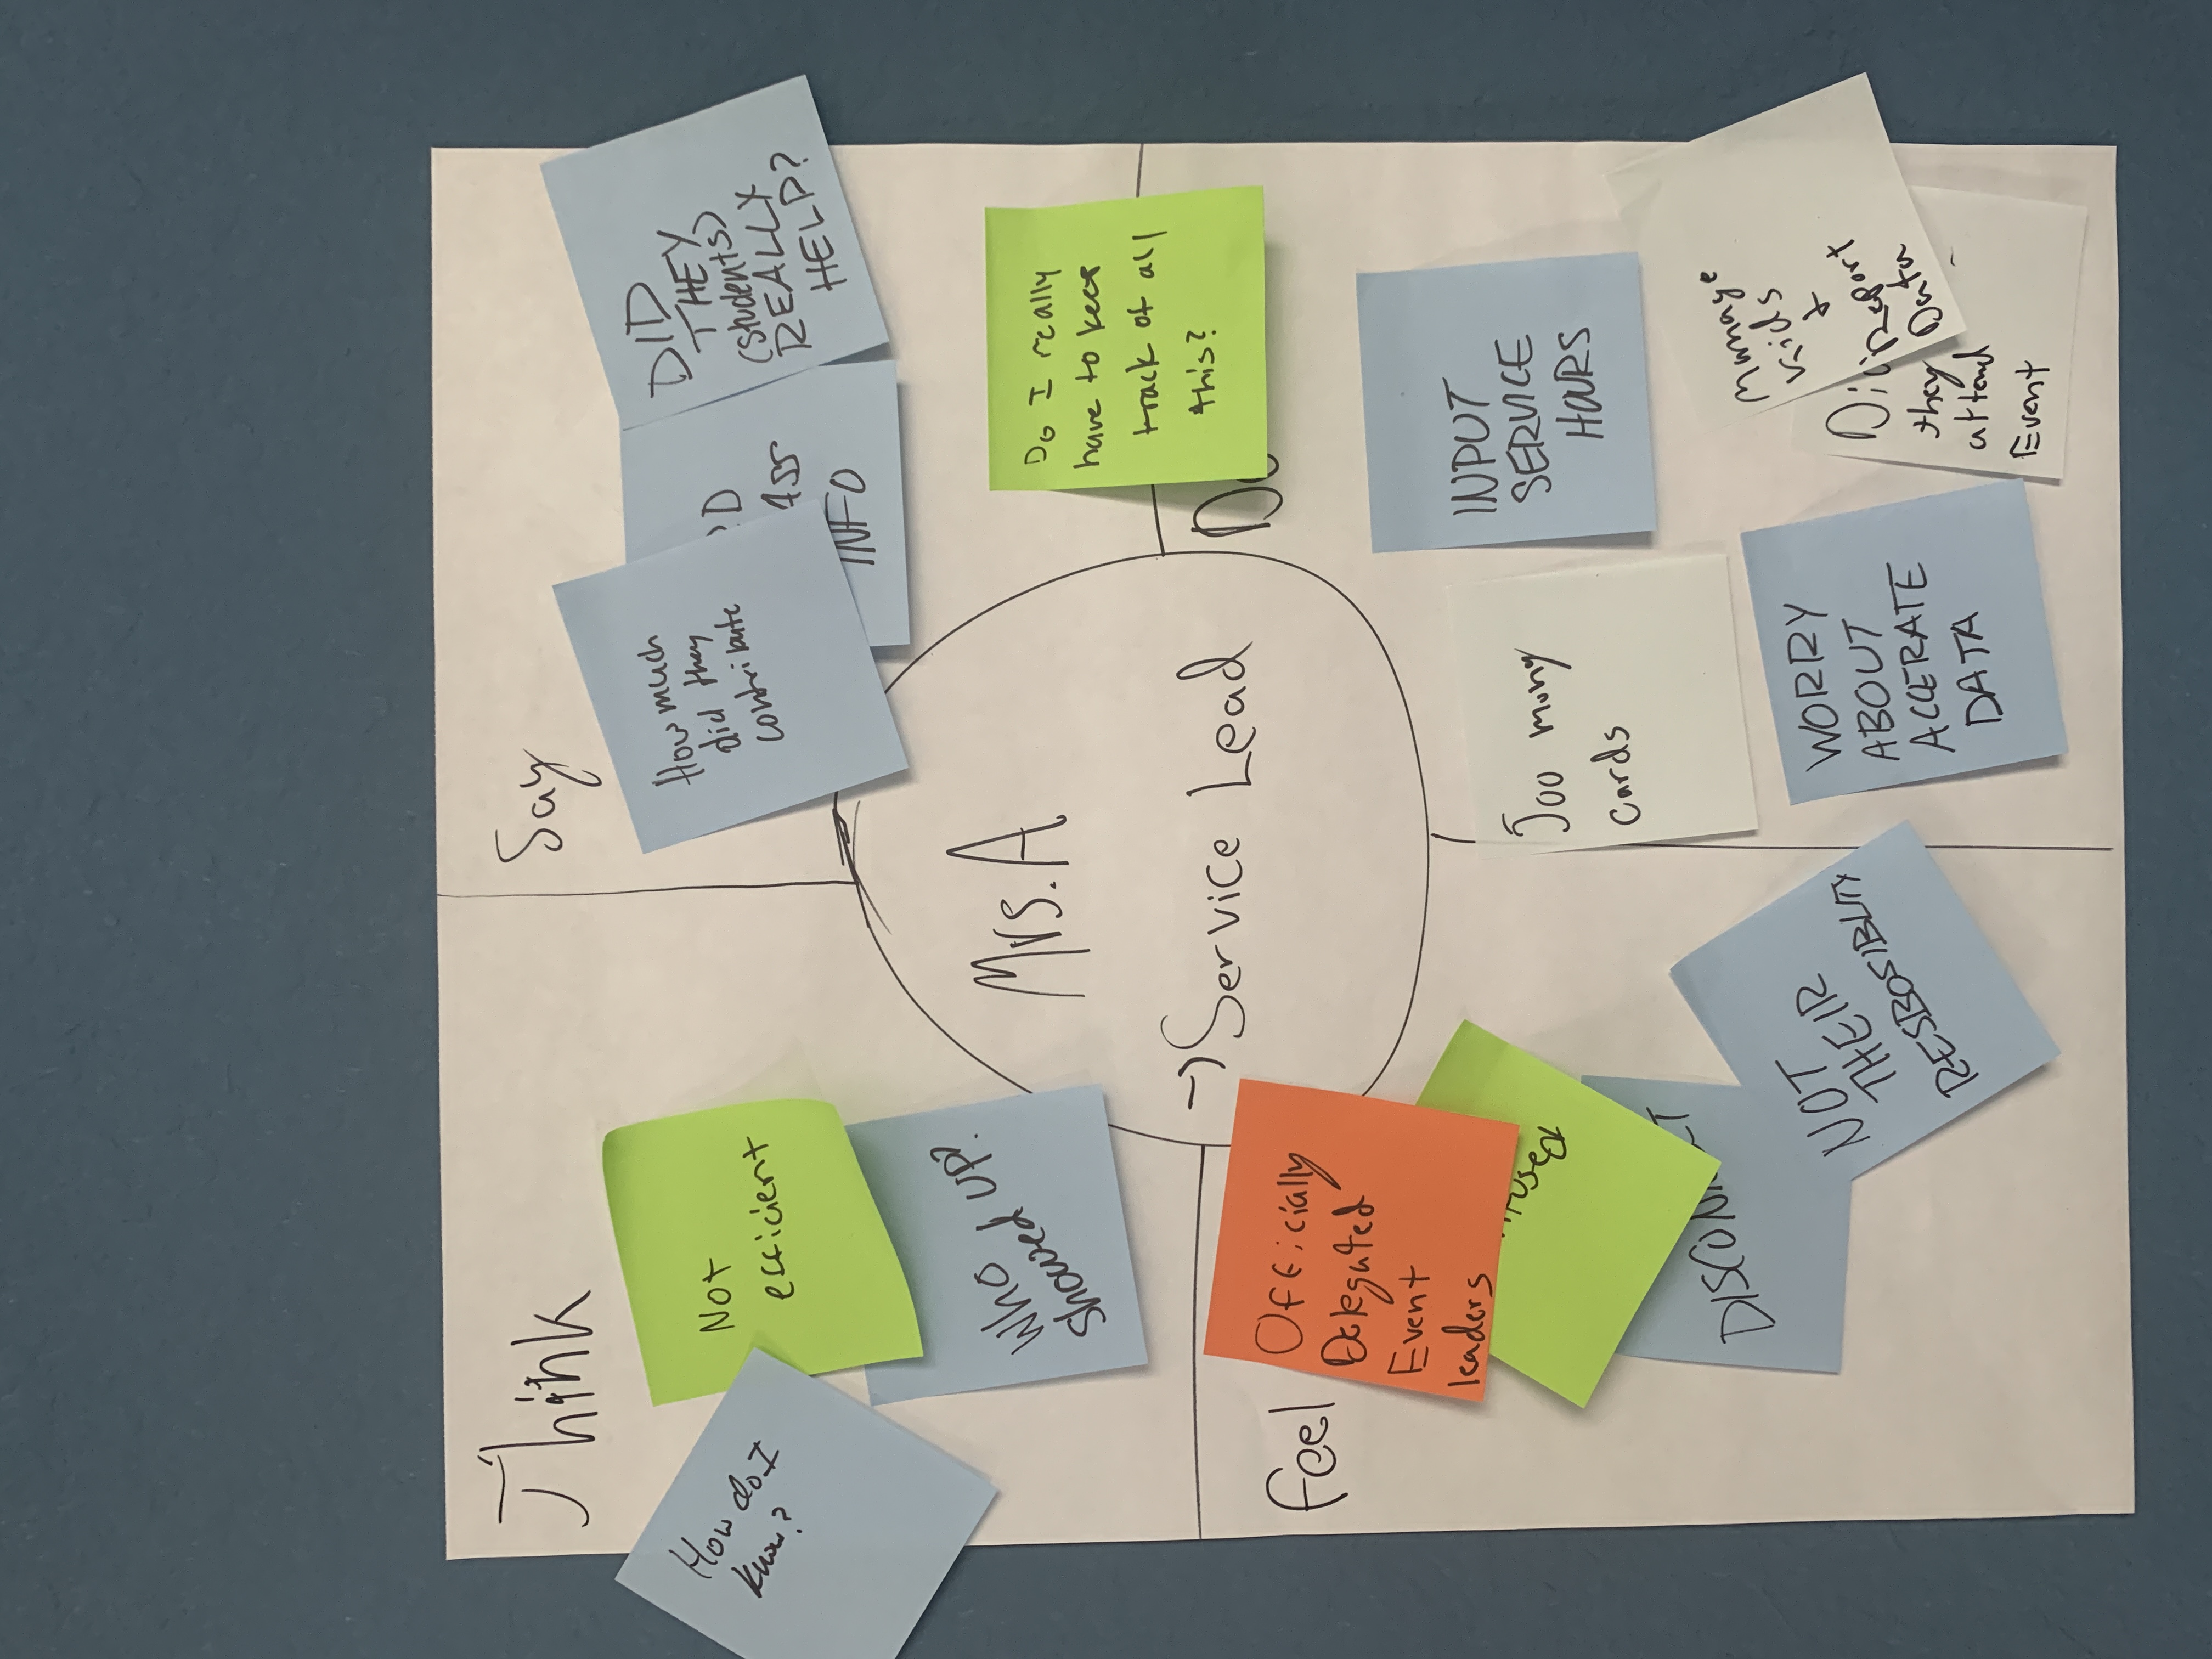 Think
How do I
know?
Not
efficient
WHO
showed UP?
Say
How much
did they
contribute
INFO
DID
THEY
(students)
REALLY
HELP?
Mrs. A
→ Service Lead
Do I really
have to keep
track of all
this?
Feel
Officially
Delegated
Event
leaders
NOT
THEIR
RESBOSIBLITY
Do
Too many
cards
INPUT
SERVICE
HOURS
WORRY
ABOUT
ACCERATE
DATA
Manage
kids
+
Report
Data
they
attend
Event